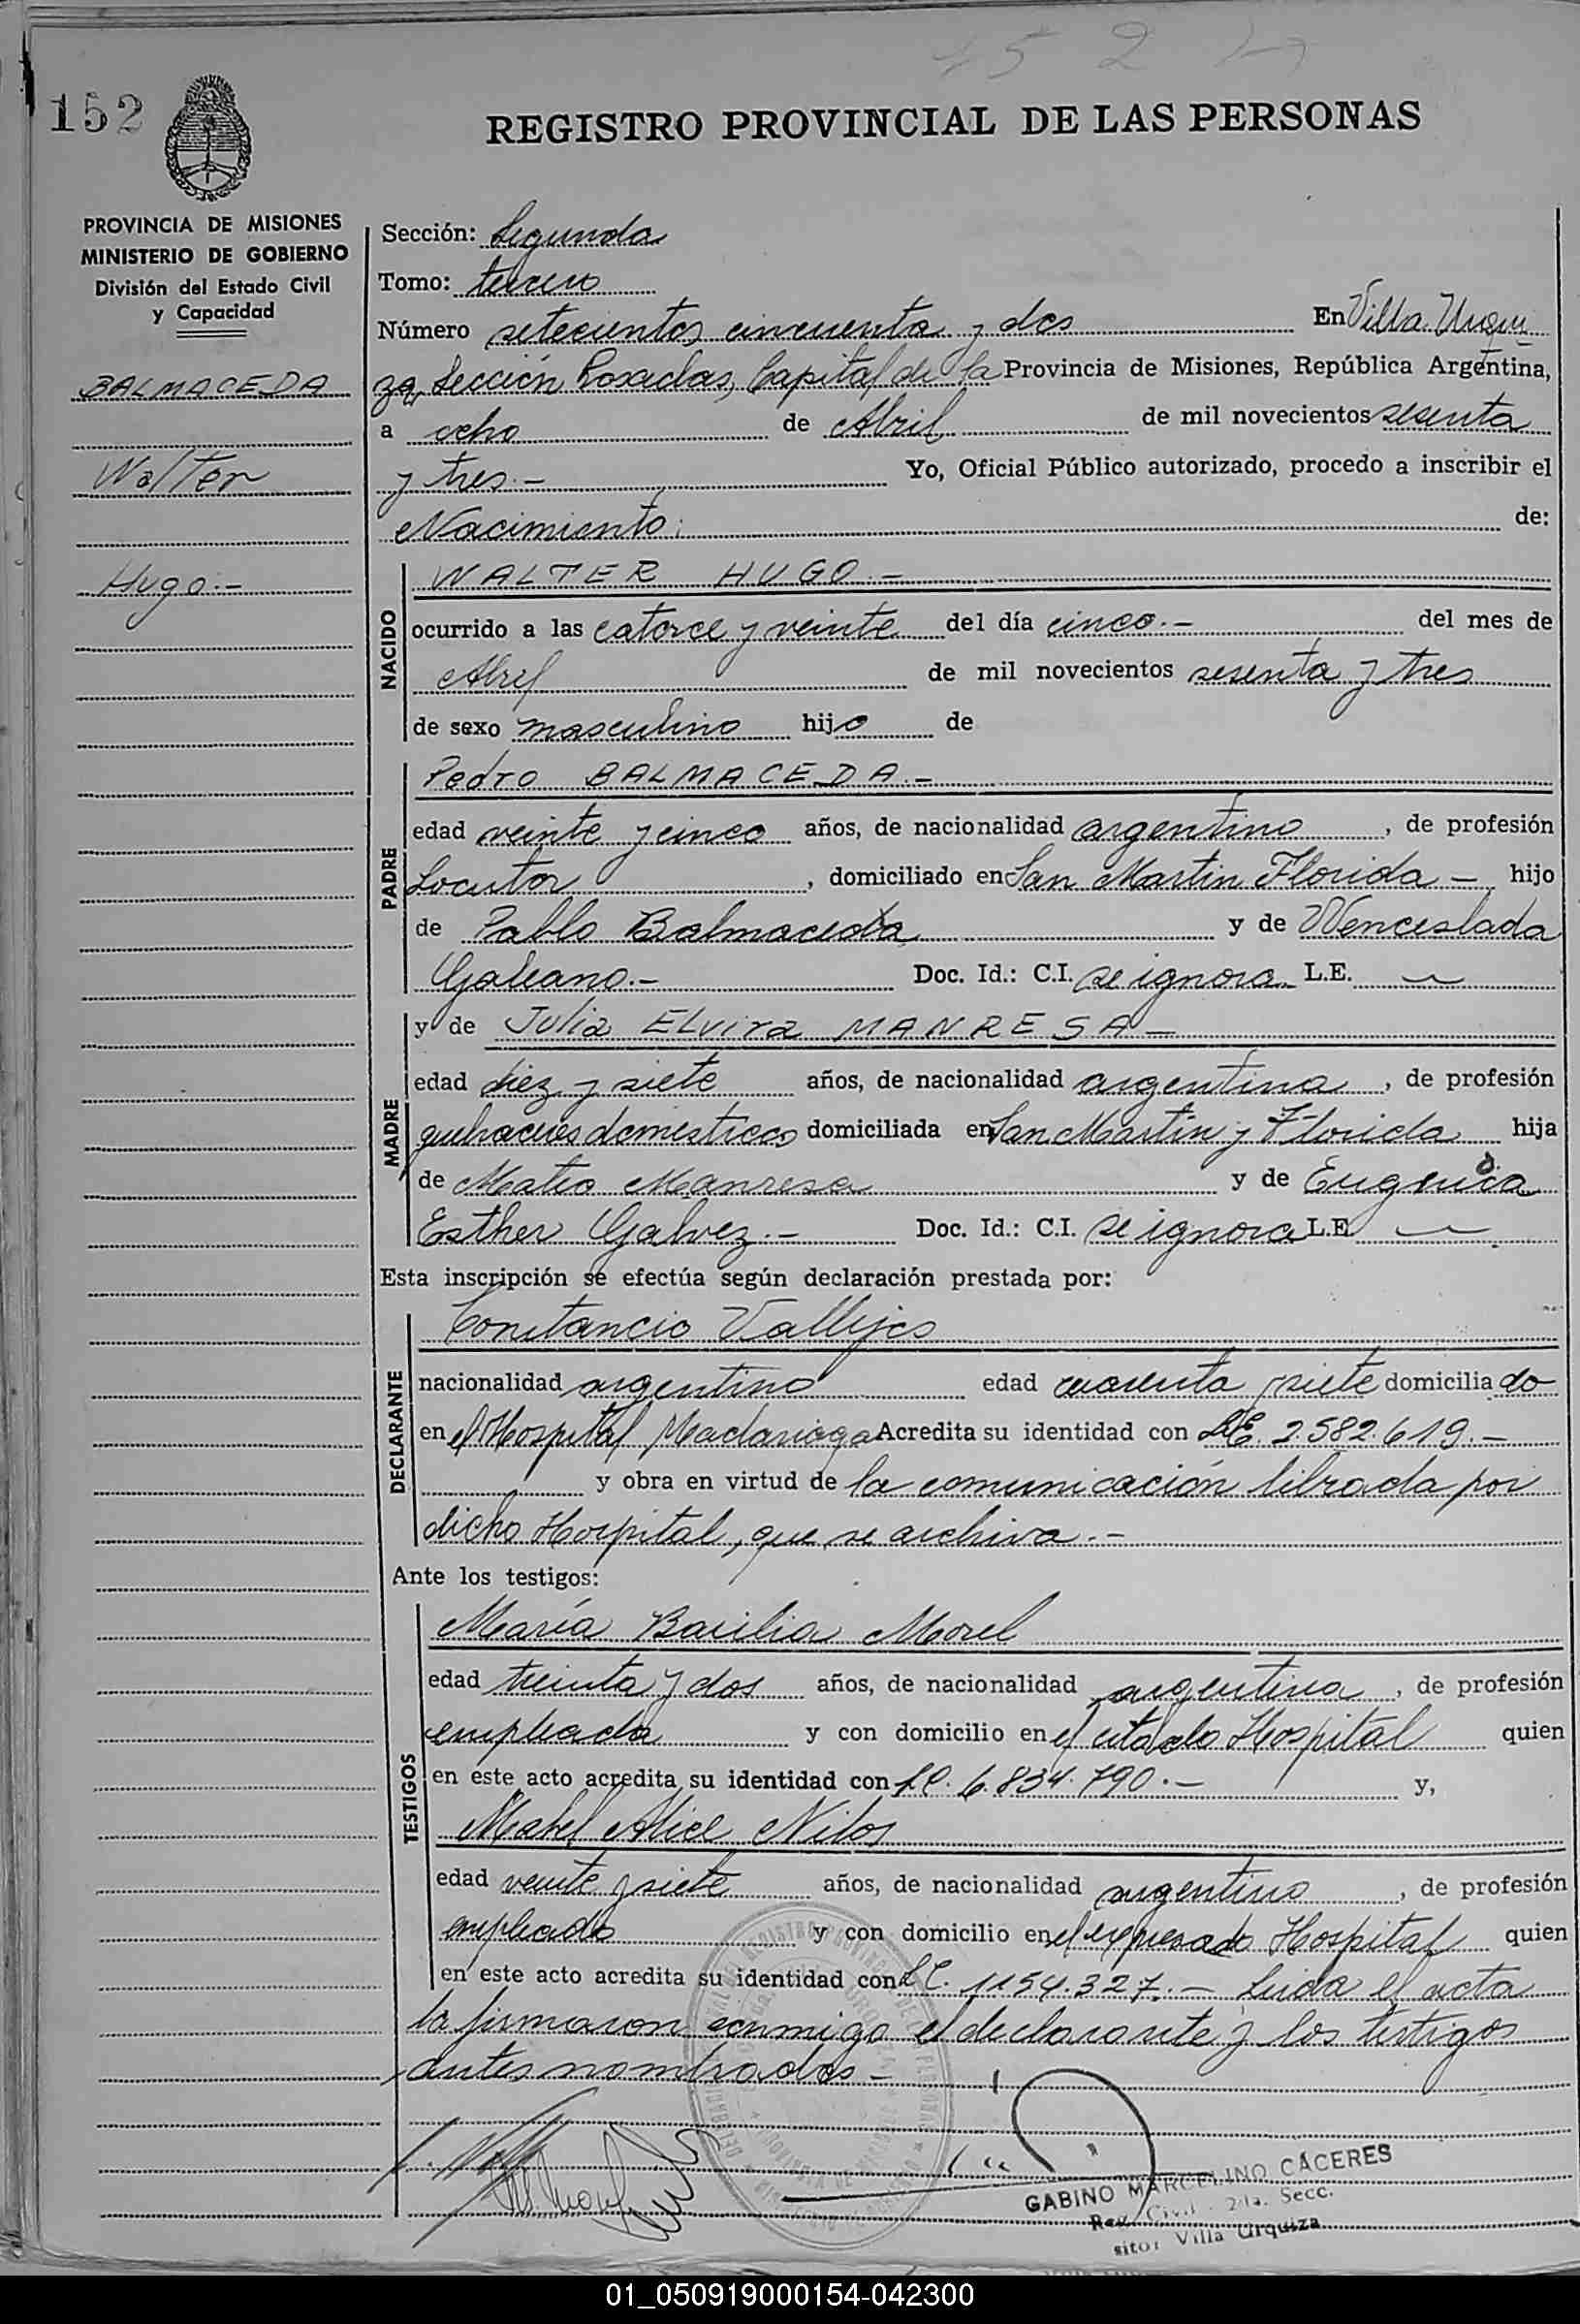 752
152
REGISTRO PROVINCIAL DE LAS PERSONAS
PROVINCIA DE MISIONES
MINISTERIO DE GOBIERNO
División del Estado Civil
y Capacidad
BALMACEDA
Walter
Hugo.-
Sección: Segunda
Tomo: tercero
Número setecientos cincuenta y dos En Villa Urqui
za, Sección Posadas, Capital de la Provincia de Misiones, República Argentina,
a ocho de Abril de mil novecientos sesenta
y tres.- Yo, Oficial Público autorizado, procedo a inscribir el
Nacimiento: de:
NACIDO
WALTER HUGO.-
ocurrido a las catorce y veinte del día cinco.- del mes de
Abril de mil novecientos sesenta y tres
de sexo masculino hijo de
PADRE
Pedro BALMACEDA.-
edad veinte y cinco años, de nacionalidad argentino, de profesión
Locutor, domiciliado en San Martin Florida - hijo
de Pablo Balmaceda y de Wenceslada
Galeano.- Doc. Id.: C.I. se ignora L.E. —
MADRE
y de Julia Elvira MANRESA -
edad diez y siete años, de nacionalidad argentina, de profesión
quehaceres domesticos domiciliada en San Martin y Florida hija
de Mateo Manresa y de Eugenia
Esther Galvez.- Doc. Id.: C.I. se ignora L.E. —
Esta inscripción se efectúa según declaración prestada por:
DECLARANTE
Constancio Vallejos
nacionalidad argentino edad cuarenta y siete domiciliado
en el Hospital Madariaga Acredita su identidad con L.E. 2.582.619.-
y obra en virtud de la comunicación librada por
dicho Hospital, que se archiva.-
Ante los testigos:
TESTIGOS
María Basilia Morel
edad treinta y dos años, de nacionalidad argentina, de profesión
empleada y con domicilio en el citado Hospital quien
en este acto acredita su identidad con L.C. 6.834.790.- y,
Mabel Alice Nilos
edad veinte y siete años, de nacionalidad argentino, de profesión
empleado y con domicilio en el expresado Hospital quien
en este acto acredita su identidad con L.C. 1154.327.- Leida el acta
la firmaron conmigo el declarante y los testigos
antes nombrados -
GABINO MARCELINO CACERES
Reg. Civil - 2da. Secc.
Villa Urquiza
01_050919000154-042300